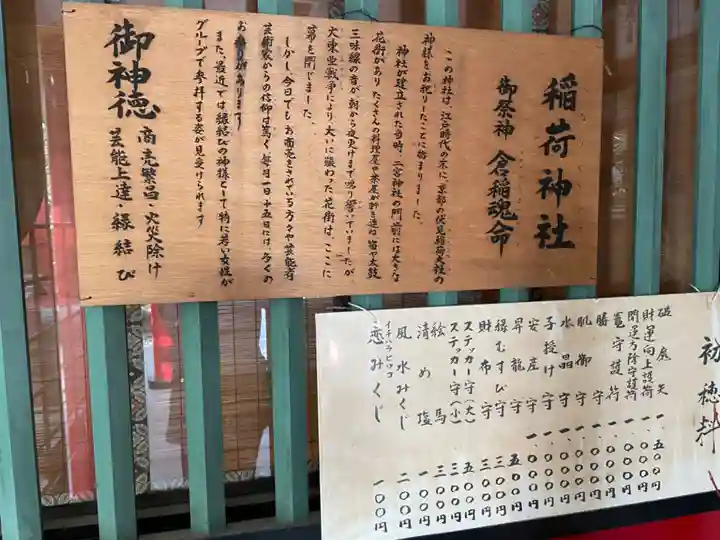 稲荷神社
御祭神 倉稲魂命
この神社は、江戸時代の末に、京都の伏見稲荷大社の
神様をお祀りしたことに始まりました。
神社が建立された当時、二宮神社の門前には大きな
花街があり、たくさんの料理屋や茶屋が軒を連ね、笛や太鼓
三味線の音が、朝から夜更けまで鳴り響いていましたが、
大東亜戦争により、大いに賑わった花街は、ここに
幕を閉じました。
しかし、今日でもお商売をされている方々や芸能者
芸術家からの信仰は篤く、毎月一日、十五日には、多くの
お参りがあります
また、最近では縁結びの神様として特に若い女性が
グループで参拝する姿が見受けられます
御神徳 商売繁昌・火災除け
芸能上達・縁結び
初穂料
破魔矢 一五〇〇円
財運向上護符 一〇〇〇円
開運方除守護符 一〇〇〇円
竈守護符 一〇〇〇円
勝守 一〇〇〇円
肌御守 一〇〇〇円
水晶守 一〇〇〇円
子授け守 一〇〇〇円
安産守 一〇〇〇円
昇龍守 五〇〇円
縁むすび守 三〇〇円
財布守 三〇〇円
ステッカー守(大) 五〇〇円
ステッカー守(小) 三〇〇円
絵馬 三〇〇円
清め塩 一〇〇円
風水みくじ 二〇〇円
イチハラヒロコ
恋みくじ 一〇〇円